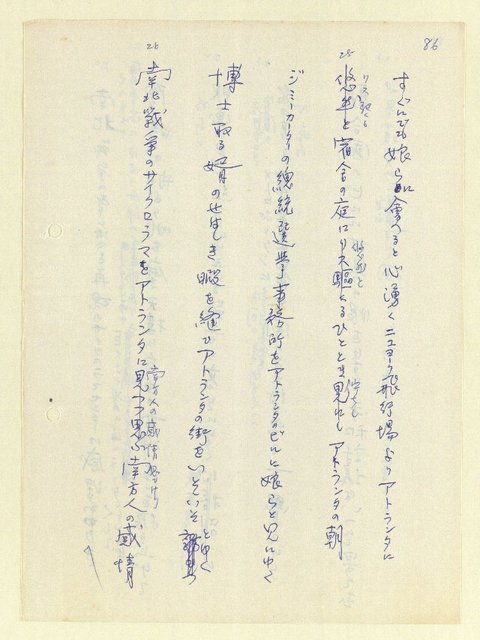 86
すぐにでも娘らに會へると心湧くニユヨーク飛行場よりアトランタに
28
悠然と宿舎の庭にリス驅くるひととき見れりアトランタの朝
ジミーカーターの總統選擧事務所をアトランタのビルに娘らと見にゆく
博士取る婿のせはしき暇を縫ひアトランタの街をいそいそとゆく
28
南方人の感情
南北戰爭のサイクロラマをアトランタに見つつ思ふ南方人の感情